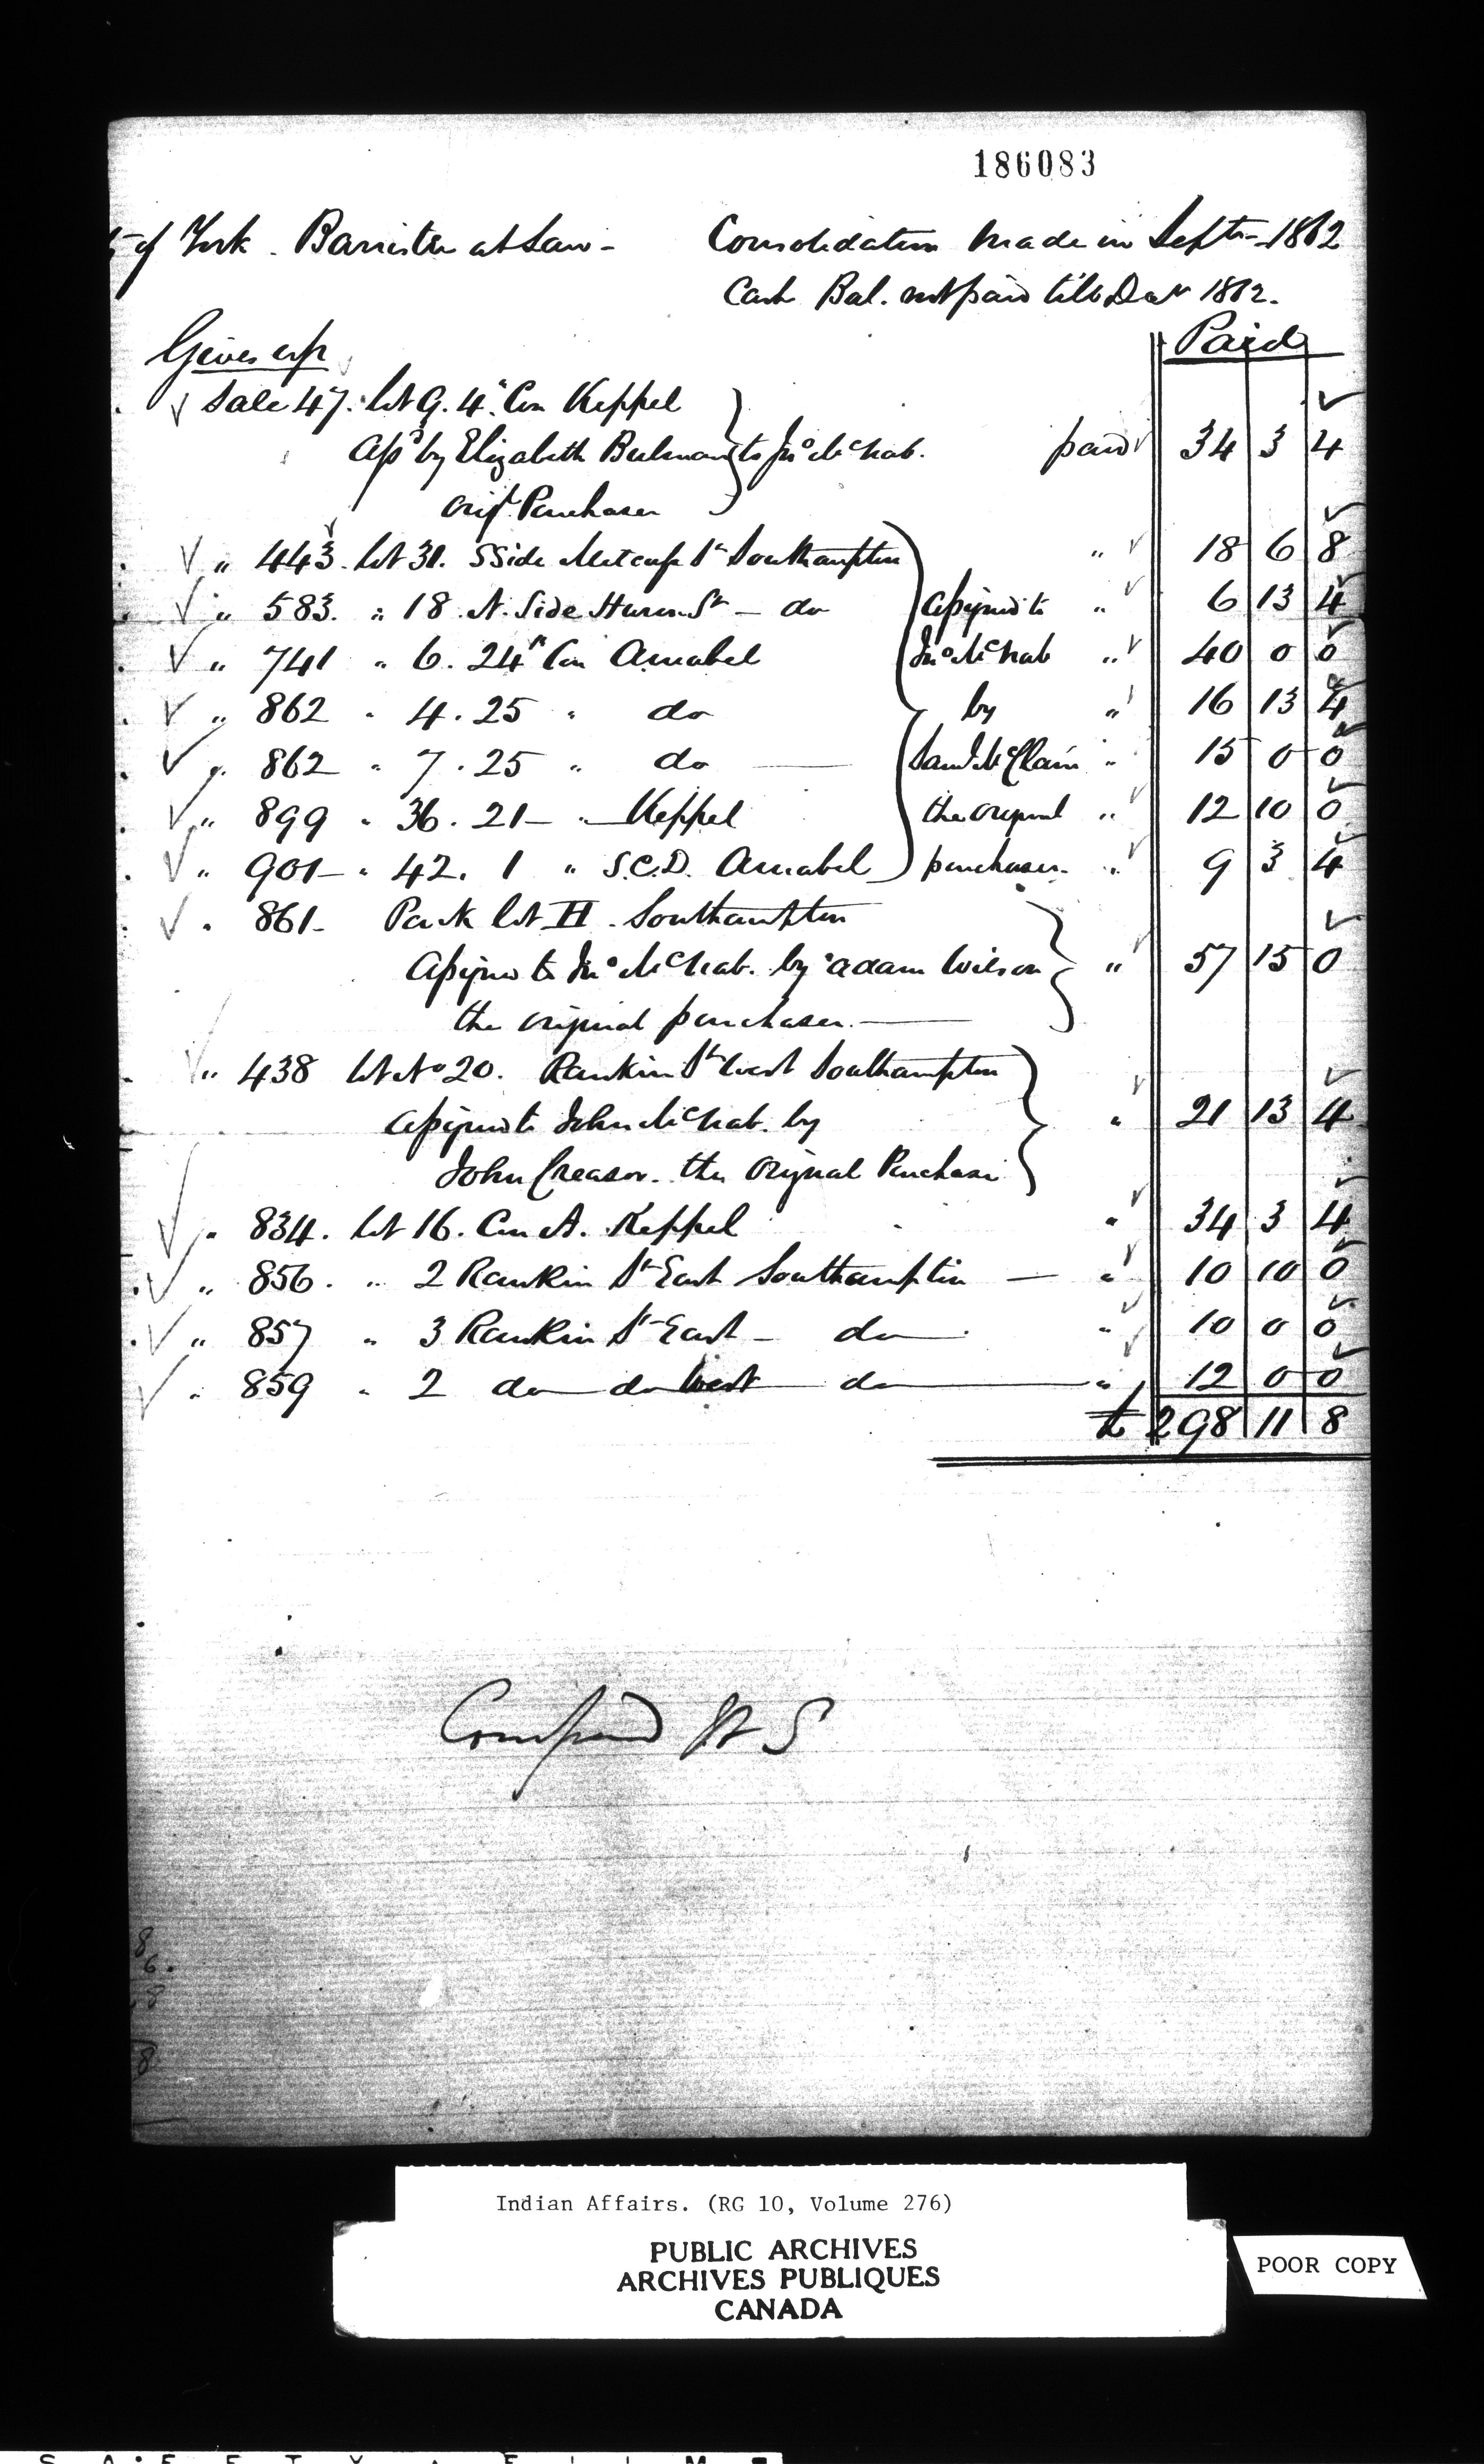 186083
of York. Barrister at Law - Consolidation made in Septr 1862
Cash Bal. not paid till Decr 1862.
Gives up Paid
✓ Sale 47. Lot 9. 4th Con Keppel
assd by Elizabeth Bulman to Jno McNab. paid ✓ 34 3 4
orig. Purchaser
✓ " 443. Lot 31. S Side Metcalfe St Southampton " ✓ 18 6 8
✓ " 583. " 18. N. Side Huron St - do assigned to " ✓ 6 13 4
✓ " 741 " 6. 24th Con Amabel Jno McNab " ✓ 40 0 0
✓ " 862 " 4. 25 " do by " 16 13 4
✓ " 862 " 7. 25 " do Saml McClain " 15 0 0
✓ " 899 " 36. 21 - " Keppel the original " 12 10 0
✓ " 901 - " 42. 1 " S.C.D. Amabel purchaser. " 9 3 4
✓ " 861 - Park Lot H. Southampton
assigned to Jno McNab. by Adam Wilson " 57 15 0
the original purchaser.
✓ " 438 Lot No 20. Rankin St West Southampton
assigned to John McNab. by " 21 13 4
John Creasor. the Original Purchaser
✓ " 834. Lot 16. Con A. Keppel " 34 3 4
✓ " 856. " 2 Rankin St East Southampton - " 10 10 0
✓ " 857 " 3 Rankin St East - do " 10 0 0
✓ " 859 " 2 do do West do " 12 0 0
£ 298 11 8
Compared
8
6.
8
8
Indian Affairs. (RG 10, Volume 276)
PUBLIC ARCHIVES
ARCHIVES PUBLIQUES
CANADA
POOR COPY